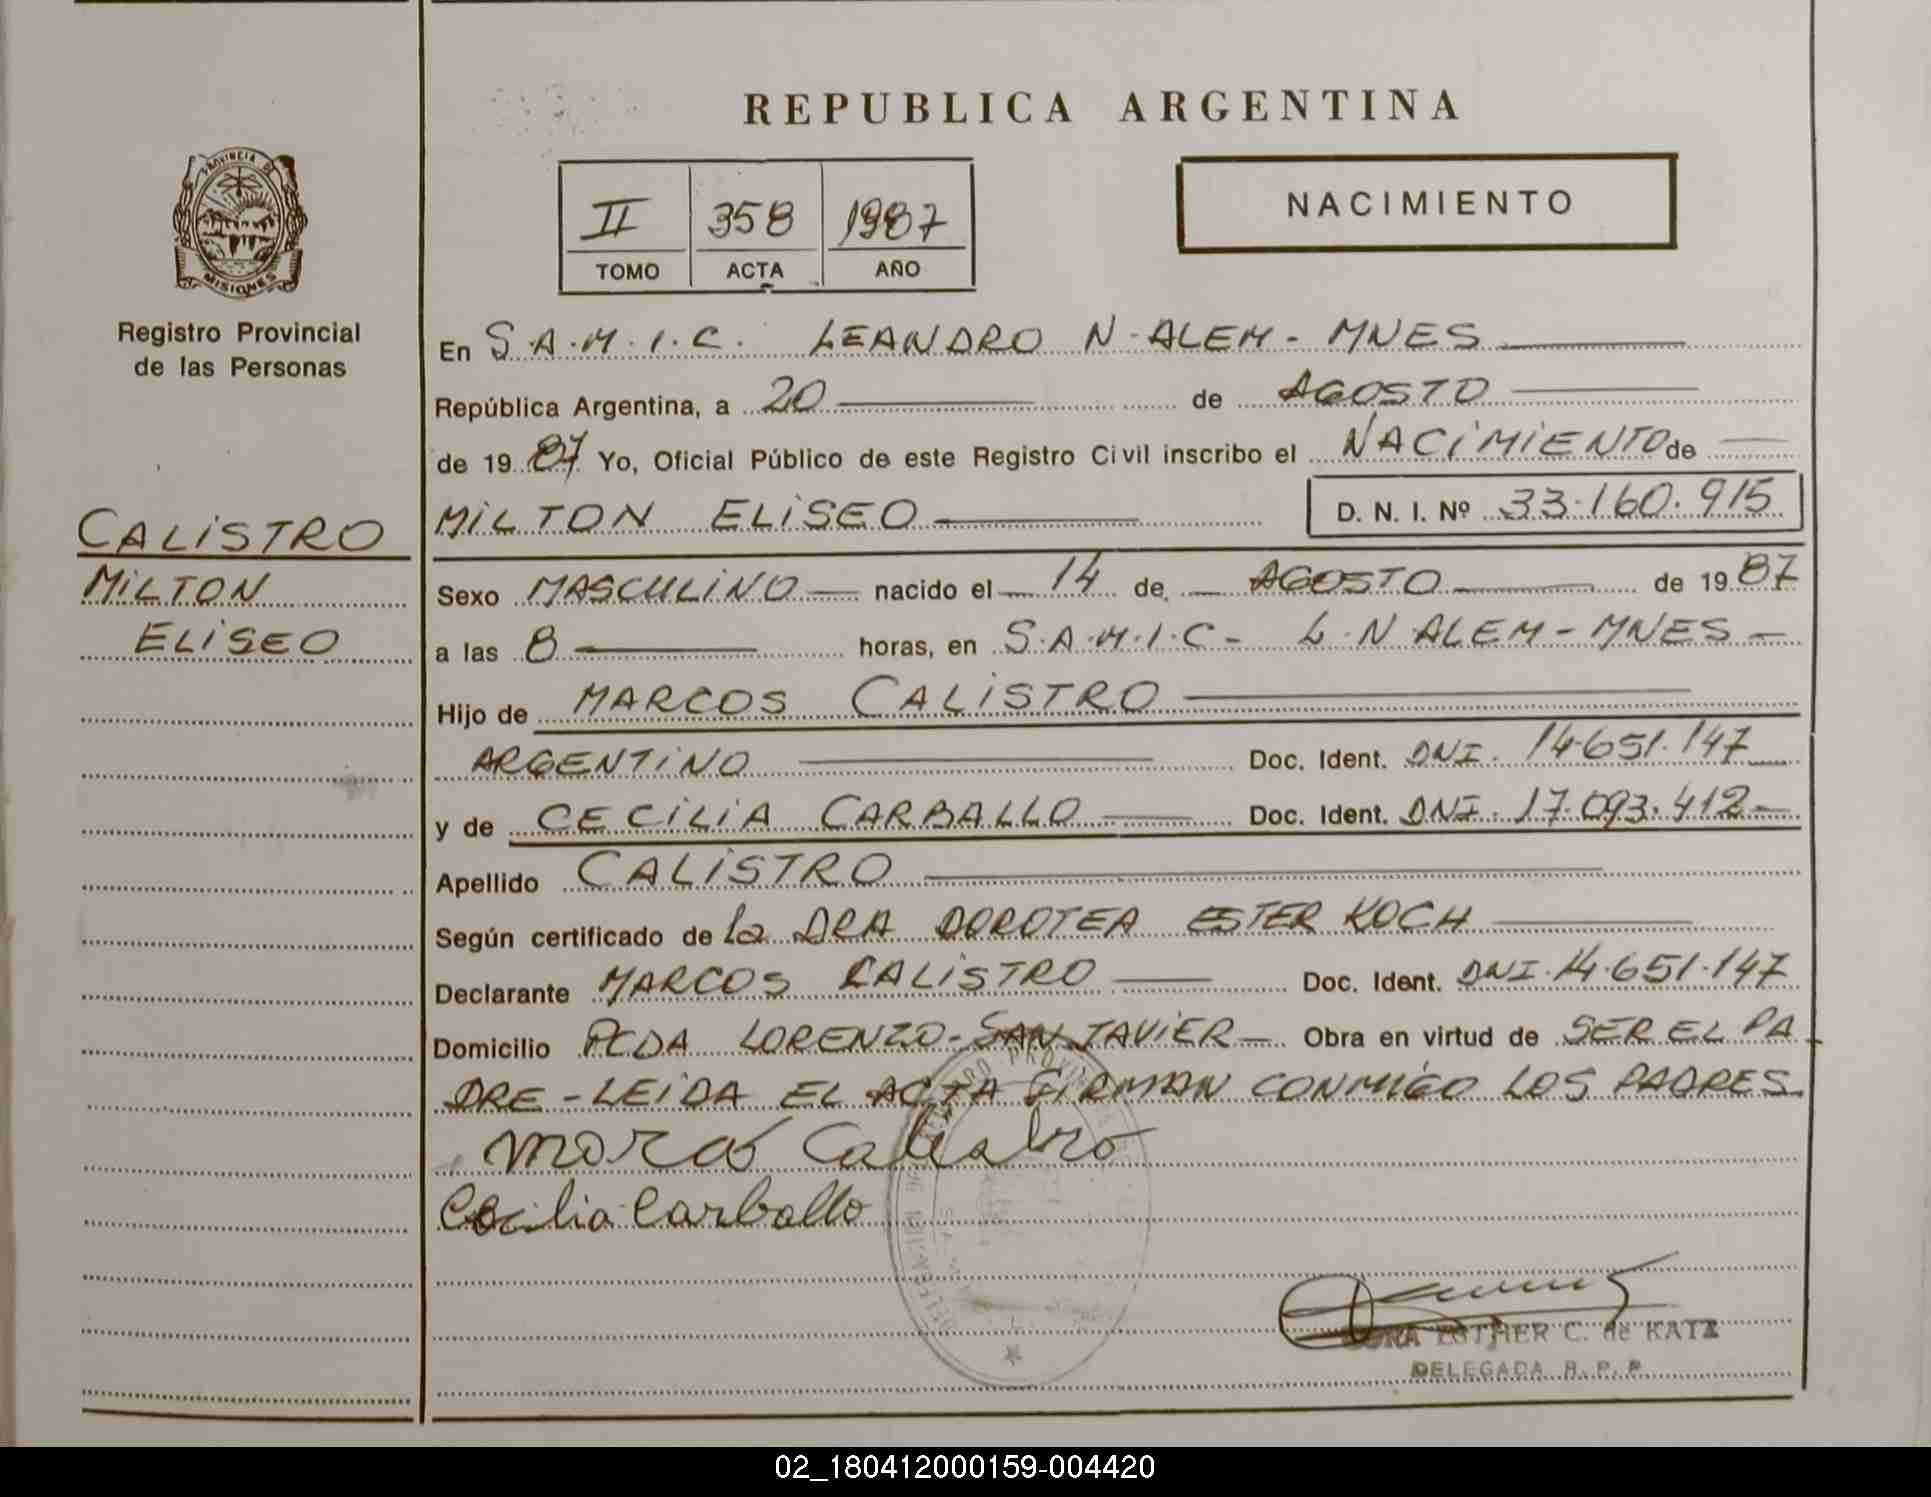 REPUBLICA ARGENTINA
PROVINCIA DE
MISIONES
Registro Provincial
de las Personas
II 358 1987
TOMO ACTA AÑO
NACIMIENTO
CALISTRO
MILTON
ELISEO
En S.A.M.I.C. LEANDRO N. ALEM - MNES
República Argentina, a 20 de AGOSTO
de 1987 Yo, Oficial Público de este Registro Civil inscribo el NACIMIENTO de
MILTON ELISEO D. N. I. Nº 33.160.915
Sexo MASCULINO nacido el 14 de AGOSTO de 1987
a las 8 horas, en S.A.M.I.C - L.N. ALEM - MNES -
Hijo de MARCOS CALISTRO
ARGENTINO Doc. Ident. DNI. 14.651.147
y de CECILIA CARBALLO Doc. Ident. DNI. 17.093.412 -
Apellido CALISTRO
Según certificado de la DRA DOROTEA ESTER KOCH
Declarante MARCOS CALISTRO Doc. Ident. DNI. 14.651.147
Domicilio PCDA LORENZO - SAN JAVIER - Obra en virtud de SER EL PA
DRE - LEIDA EL ACTA FIRMAN CONMIGO LOS PADRES.
Marcos Calistro
Cecilia Carballo
ESTHER C. de KATZ
DELEGADA R. P. P.
02_180412000159-004420